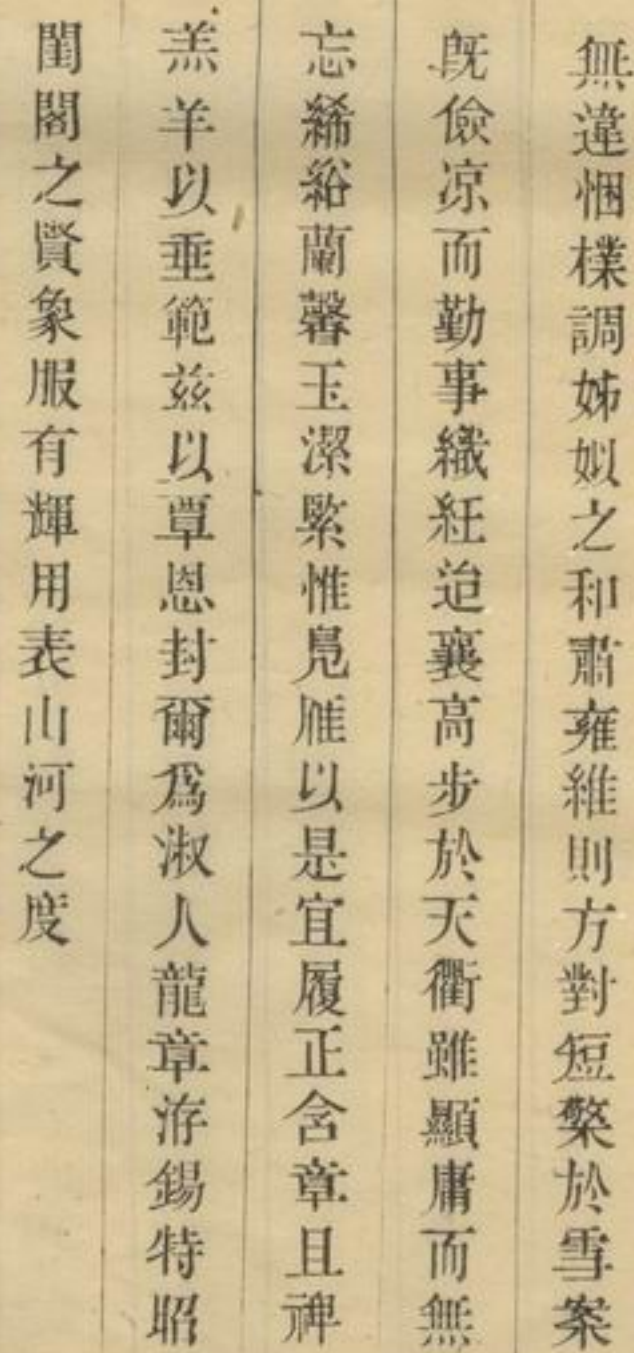 無違悃樸調姊姒之和肅雍維則方對短檠於雪案
既儉凉而勤事織紝迨襄高步於天衢雖顯庸而無
忘絺綌蘭馨玉潔縶惟鳬雁以是宜履正含章且裨
羔羊以垂範兹以覃恩封爾爲淑人龍章洊錫特昭
閨閤之賢象服有輝用表山河之度